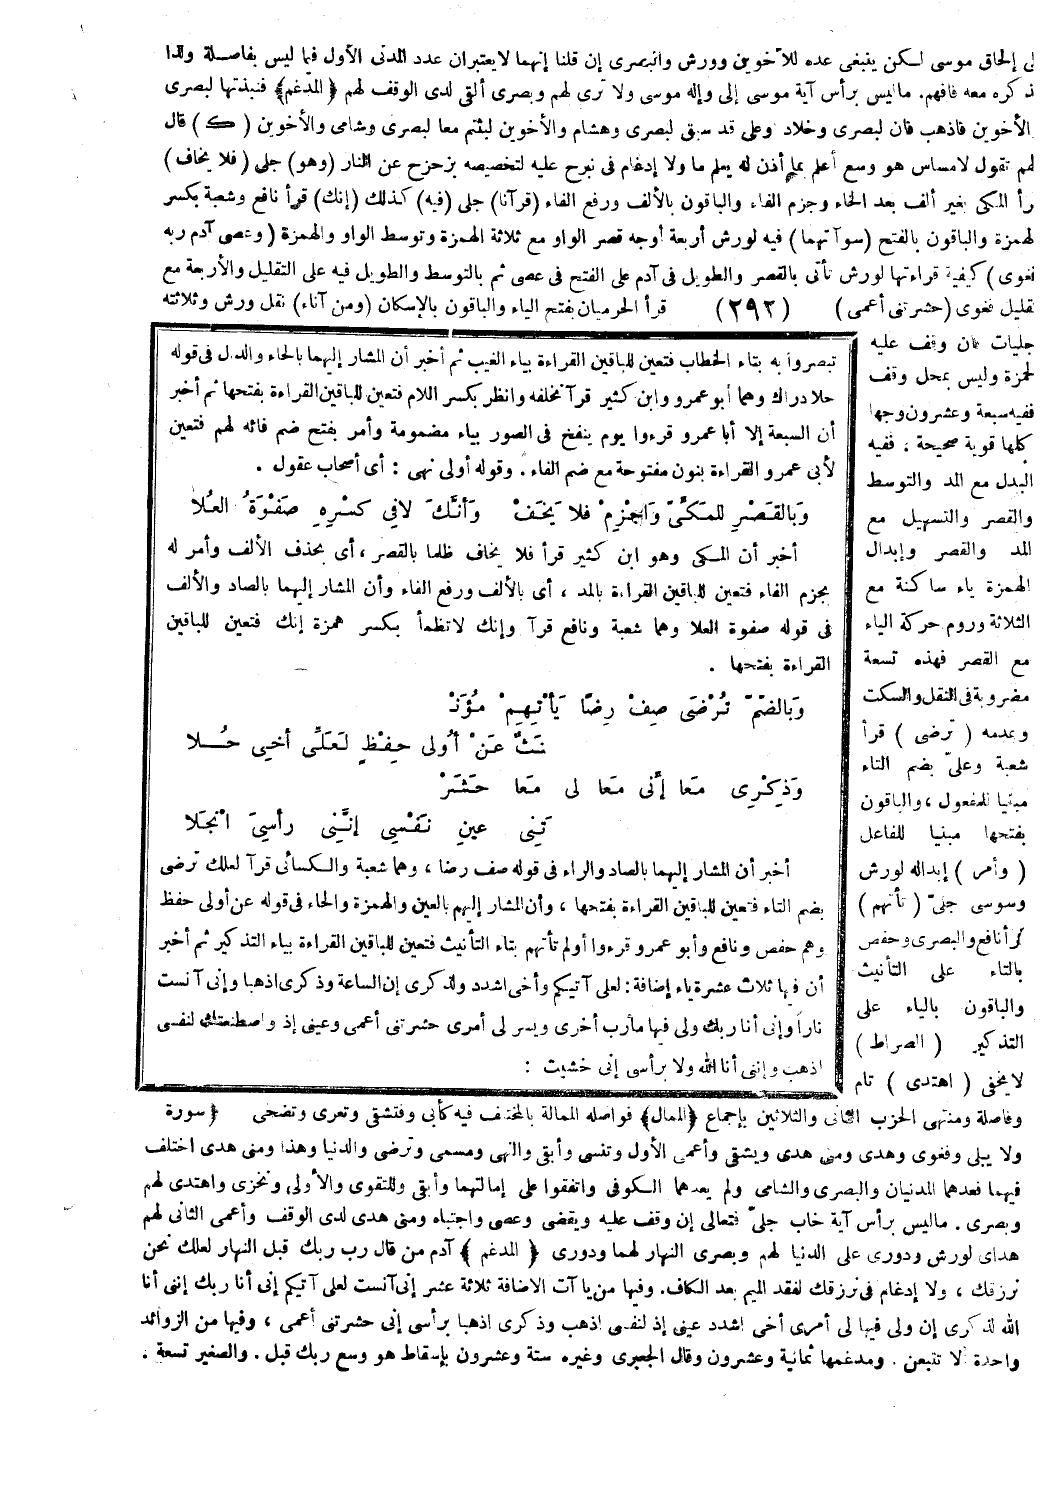 لى إلحاق موسى لكن ينبغى عده للأخوين وورش والبصرى إن قلنا إنهما لا يعتبران عدد المدنى الأول فيما ليس بفاصلة ولذا
ذكره معه فافهم. ما ليس برأس آية موسى إلى وإله موسى ولا ترى لهم وبصرى ألقى لدى الوقف لهم ﴿المدغم﴾ فنبذتها لبصرى
الأخوين فاذهب فان لبصرى وخلاد وعلى قد سبق لبصرى وهشام والأخوين لبثتم معا لبصرى وشامى والأخوين (ك) قال
لهم تقول لامساس هو وسع أعلم بما أذن له يعلم ما ولا إدغام فى نبرح عليه لتخصيصه بزحزح عن النار (وهو) جلى (فلا يخاف)
رأ المكى بغير ألف بعد الخاء وجزم الفاء والباقون بالألف ورفع الفاء (قرآنا) جلى (فيه) كذلك (إنك) قرأ نافع وشعبة بكسر
لهمزة والباقون بالفتح (سوآتهما) فيه لورش أربعة أوجه قصر الواو مع ثلاثة الهمزة وتوسط الواو والهمزة (وعصى آدم ربه
فغوى) كيفية قراءتها لورش تأتى بالقصر والطويل فى آدم على الفتح فى عصى ثم بالتوسط والطويل فيه على التقليل والأربعة مع
تقليل فغوى (حشرتنى أعمى) (٢٩٢) قرأ الحرميان بفتح الياء والباقون بالإسكان (ومن آناء) نقل ورش وثلاثته
جليات فان وقف عليه
لحمزة وليس بمحل وقف
ففيه سبعة وعشرون وجها
كلها قوية صحيحة ، ففيه
البدل مع المد والتوسط
والقصر والتسهيل مع
المد والقصر وإبدال
الهمزة ياء ساكنة مع
الثلاثة وروم حركة الياء
مع القصر فهذه تسعة
مضروبة فى النقل والسكت
وعدمه (ترضى) قرأ
شعبة وعلىّ بضم التاء
مبنيا للمفعول ، والباقون
بفتحها مبنيا للفاعل
(وأمر) إبداله لورش
وسوسى جلىّ (تأتهم)
قرأ نافع والبصرى وحفص
بالتاء على التأنيث
والباقون بالياء على
التذكير (الصراط)
لا يخفى (اهتدى) تام
تبصروا به بتاء الخطاب فتعين للباقين القراءة بياء الغيب ثم أخبر أن المشار إليهما بالحاء والدال فى قوله
حلا دراك وهما أبو عمرو وابن كثير قرآ تخلفه وانظر بكسر اللام فتعين للباقين القراءة بفتحها ثم أخبر
أن السبعة إلا أبا عمرو قرءوا يوم ينفخ فى الصور بياء مضمومة وأمر بفتح ضم فائه لهم فتعين
لأبى عمرو القراءة بنون مفتوحة مع ضم الفاء. وقوله أولى نهى : أى أصحاب عقول .
وَبِالقَصْرِ للمَكِّىِّ وَاجْزِمْ فلا يَخَفْ وَأنَّكَ لا فى كَسْرِهِ صَفْوَةُ العُلا
أخبر أن المكى وهو ابن كثير قرأ فلا يخاف ظلما بالقصر ، أى بحذف الألف وأمر له
بجزم الفاء فتعين للباقين القراءة بالمد ، أى بالألف ورفع الفاء وأن المشار إليهما بالصاد والألف
فى قوله صفوة العلا وهما شعبة ونافع قرآ وإنك لاتظمأ بكسر همزة إنك فتعين للباقين
القراءة بفتحها .
وَبالضَّمّ تُرْضَى صِفْ رِضًا يَأْتهِمْ مُؤَنَّـ
ـنَثٌ عَنْ أُولى حِفْظٍ لَعَلِّى أخِى حُلا
وَذِكْرِى مَعًا إنِّى مَعًا لى مَعًا حَشَرْ
تَنِى عَينِ نَفْسِى إنَّنِى رَأسِىَ انْجَلا
أخبر أن المشار إليهما بالصاد والراء فى قوله صف رضا ، وهما شعبة والكسائى قرآ لعلك ترضى
بضم التاء فتعين للباقين القراءة بفتحها ، وأن المشار إليهم بالعين والهمزة والحاء فى قوله عن أولى حفظ
وهم حفص ونافع وأبو عمرو قرءوا أولم تأتهم بتاء التأنيث فتعين للباقين القراءة بياء التذكير ثم أخبر
أن فيها ثلاث عشرة ياء إضافة : لعلى آتيكم وأخى اشدد ولذكرى إن الساعة وذكرى اذهبا وإنى آنست
نارا وإنى أنا ربك ولى فيها مآرب أخرى ويسر لى أمرى حشرتنى أعمى وعينى إذ واصطنعتك لنفسى
اذهب وإننى أنا الله ولا برأسى إنى خشيت :
وفاصلة ومنتهى الحزب الثانى والثلاثين بإجماع ﴿الممال﴾ فواصله الممالة بالمختلف فيه كأبى وفتشقى وتعرى وتضحى ﴿سورة
ولا يبلى وفغوى وهدى ومنى هدى ويشقى وأعمى الأول وتنسى وأبقى والنهى ومسمى وترضى والدنيا وهذا ومنى هدى اختلف
فيهما فعدهما المدنيان والبصرى والشامى ولم يعدهما الكوفى واتفقوا على إمالتهما وأبقى وللتقوى والأولى ونخزى واهتدى لهم
وبصرى. ما ليس برأس آية خاب جلىّ فتعالى إن وقف عليه ويقضى وعصى واجتباه ومنى هدى لدى الوقف وأعمى الثانى لهم
هداى لورش ودورى على الدنيا لهم وبصرى النهار لهما ودورى ﴿المدغم﴾ آدم من قال رب ربك قبل النهار لعلك نحن
نرزقك ، ولا إدغام فى نرزقك لفقد الميم بعد الكاف. وفيها من يا آت الاضافة ثلاثة عشر إنى آنست لعلى آتيكم إنى أنا ربك إننى أنا
الله لذكرى إن ولى فيها لى أمرى أخى اشدد عينى إذ لنفسى اذهب وذكرى اذهبا برأسى إنى حشرتنى أعمى ، وفيها من الزوائد
واحدة ألا تتبعن. ومدغمها ثمانية وعشرون وقال الجعبرى وغيره ستة وعشرون بإسقاط هو وسع ربك قبل. والصغير تسعة .